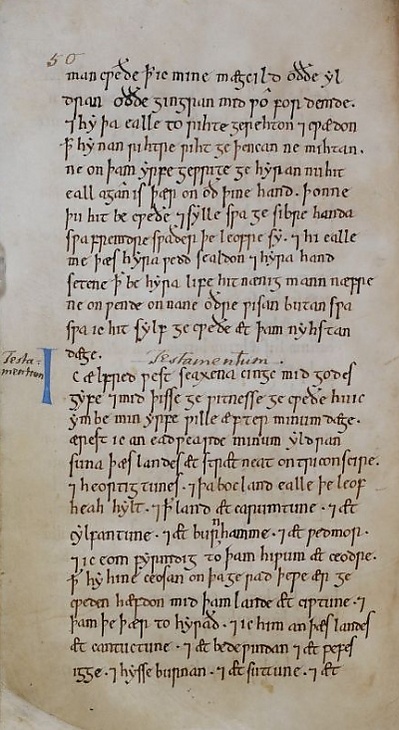 50
man cƿeðe ꝥ ic mine mægcild oððe yl
dran oððe gingran mid ƿo fordemde.
⁊ hy þa ealle to rihte gerehton ⁊ cƿædon
ꝥ hy nan rihtre riht geþencan ne mihtan.
ne on þam yrfe geƿrite gehyran nu hit
eall agan is þær on oð þine hand. þonne
þu hit becƿeðe ⁊ sylle sƿa gesibre handa
sƿa fremdre sƿaðer þe leofre sy. ⁊ hi ealle
me þæs hyra ƿedd sealdon ⁊ hyra hand
setene ꝥ be hyra life hit nænig mann næfre
ne onƿende on nane oðre ƿisan butan sƿa
sƿa ic hit sylf gecƿeðe æt þam nyhstan
dæge. Testamentum.
Testa-
mentum
Ic ælfred ƿest seaxena cinge mid godes
gyfe ⁊ mid þisse geƿitnesse gecƿeðe hu ic
ymbe min yrfe ƿille æfter minum dæge.
ærest ic an eadƿearde minum yldran
suna þæs landes æt strætneat on triconscire.
⁊ heortigtunes. ⁊ þa bocland ealle þe leof
heah hylt. ⁊ ꝥ land æt carumtune. ⁊ æt
cylfantune. ⁊ æt burnhamme. ⁊ æt ƿedmor.
⁊ ic eom fyrmdig to þam hiƿum æt ceodre.
ꝥ hy hine ceosan on þa gerad þe ƿe ær ge
cƿeden hæfdon mid þam lande æt ciptune. ⁊
þam þe þær to hyrað. ⁊ ic him an þæs landes
æt cantuctune. ⁊ æt bedeƿindan ⁊ æt pefes
igge. ⁊ hysseburnan. ⁊ æt suttune. ⁊ æt